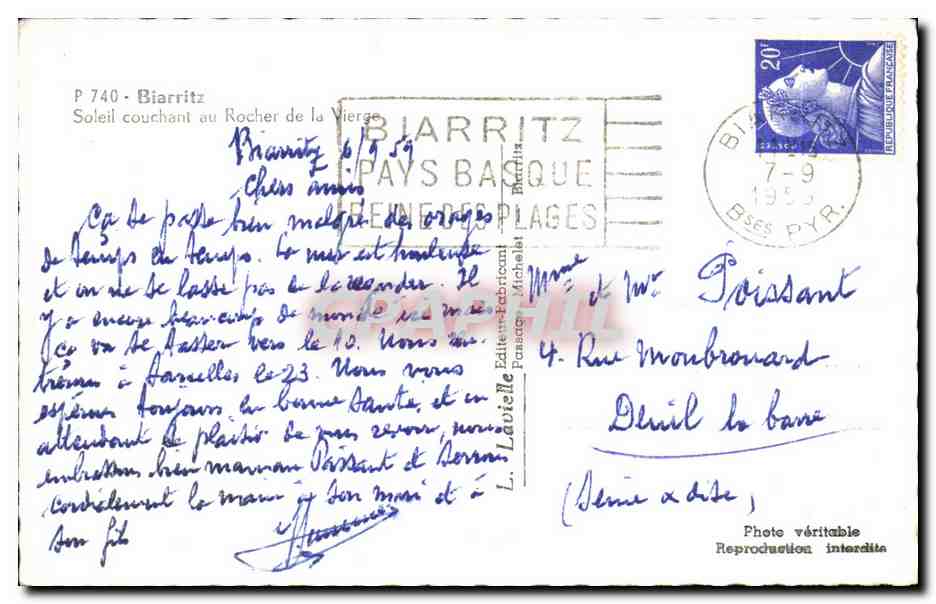 P 740 - Biarritz
Soleil couchant au Rocher de la Vierge
Biarritz 6/9 59
Chers amis
Ça se passe bien, malgré des orages
de temps en temps. La mer est houleuse
et on ne se lasse pas de la regarder. Il
y a encore beaucoup de monde ici mais
ça va se tasser vers le 10. Nous
à Sarcelles le 23. Nous vous
espérons toujours en bonne santé, et en
attendant le plaisir de vous revoir, nous
embrassons bien maman Poissant et serrons
cordialement la main à son mari et à
son fils
BIARRITZ
PAYS BASQUE
REINE DES PLAGES
20F
REPUBLIQUE FRANÇAISE
7-9
Bses PYR.
L. Lavielle Editeur-Fabricant
Passage Michelet Biarritz
CPAPHIL
Mme et Mr Poissant
4. Rue Monbrouard
Deuil la barre
(Seine & Oise)
Photo véritable
Reproduction interdite